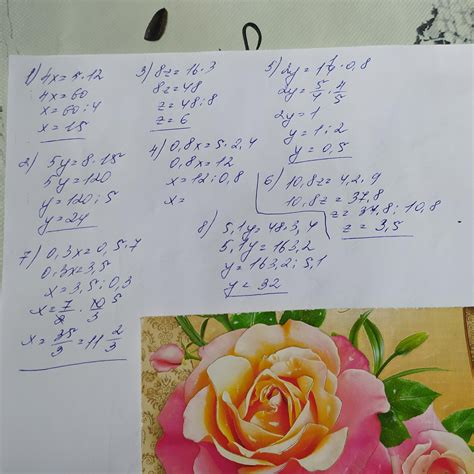 1) 4x = 5 · 12
4x = 60
x = 60 : 4
x = 15
2) 5y = 8 · 15
5y = 120
y = 120 : 5
y = 24
3) 8z = 16 · 3
8z = 48
z = 48 : 8
z = 6
4) 0,8x = 5 · 2,4
0,8x = 12
x = 12 : 0,8
x =
5) 2y = 1 1/4 · 0,8
2y = 5/4 · 4/5
2y = 1
y = 1 : 2
y = 0,5
6) 10,8z = 4,2 · 9
10,8z = 37,8
z = 37,8 : 10,8
z = 3,5
7) 0,3x = 0,5 · 7
0,3x = 3,5
x = 3,5 : 0,3
x = 7/2 · 10/3 5
x = 35/3 = 11 2/3
8) 5,1y = 48 · 3,4
5,1y = 163,2
y = 163,2 : 5,1
y = 32